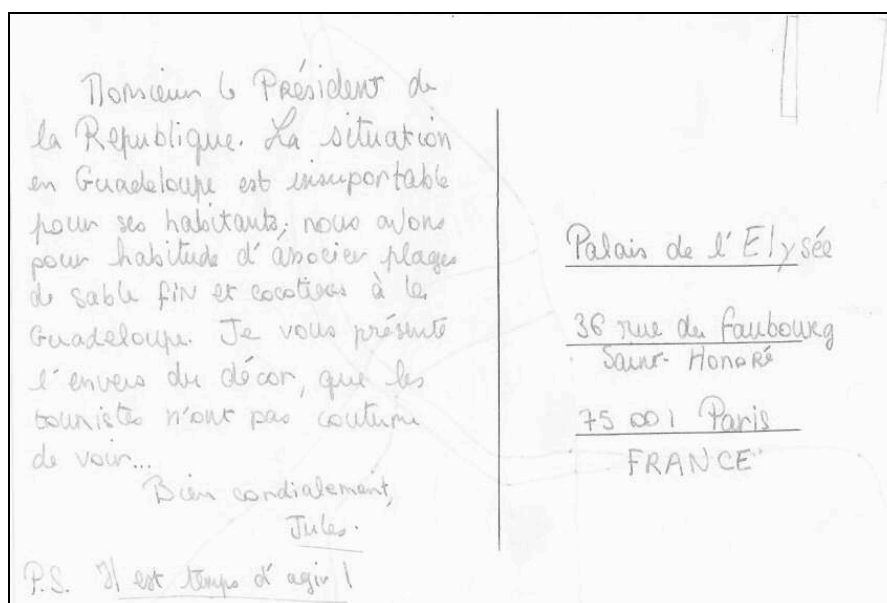 Monsieur le Président de
la Republique. La situation
en Guadeloupe est insuportable
pour ses habitants, nous avons
pour habitude d'associer plages
de sable fin et cocotiers à la
Guadeloupe. Je vous présente
l'envers du décor, que les
touristes n'ont pas coutume
de voir...
Bien cordialement,
Jules.
P.S. Il est temps d'agir !
Palais de l'Elysée
36 rue du Faubourg
Saint-Honoré
75 001 Paris
FRANCE